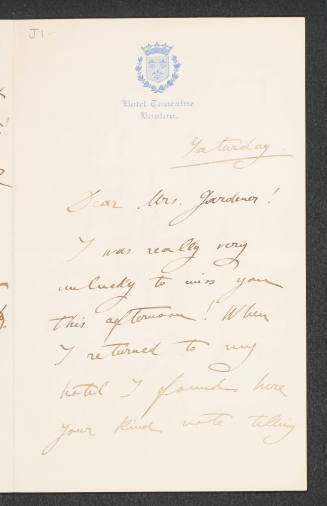 J1-
Hotel Touraine
Boston.
Saturday.
Dear Mrs. Gardener!
I was really very
unlucky to miss you
this afternoon! When
I returned to my
hotel I found here
your kind note telling